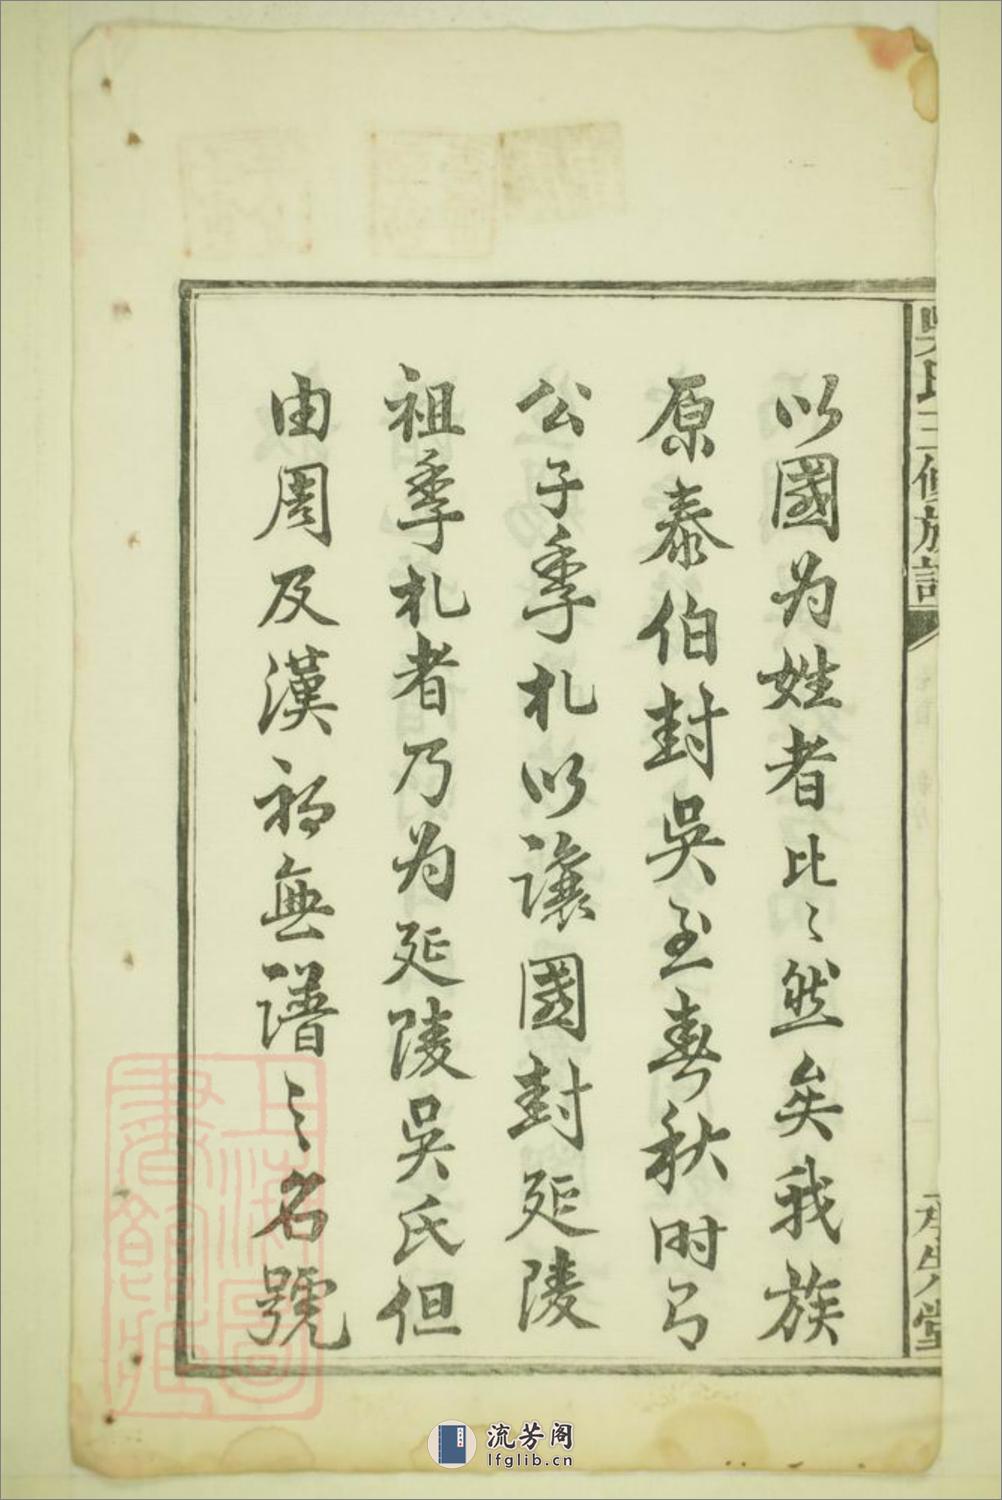 吳氏三修族譜
承先堂
以國为姓者比〻然矣我族
原泰伯封吳至春秋时有
公子季札以讓國封延陵
祖季札者乃为延陵吳氏但
由周及漢初無譜之名號
上海圖書館藏
流芳阁
lfglib.cn